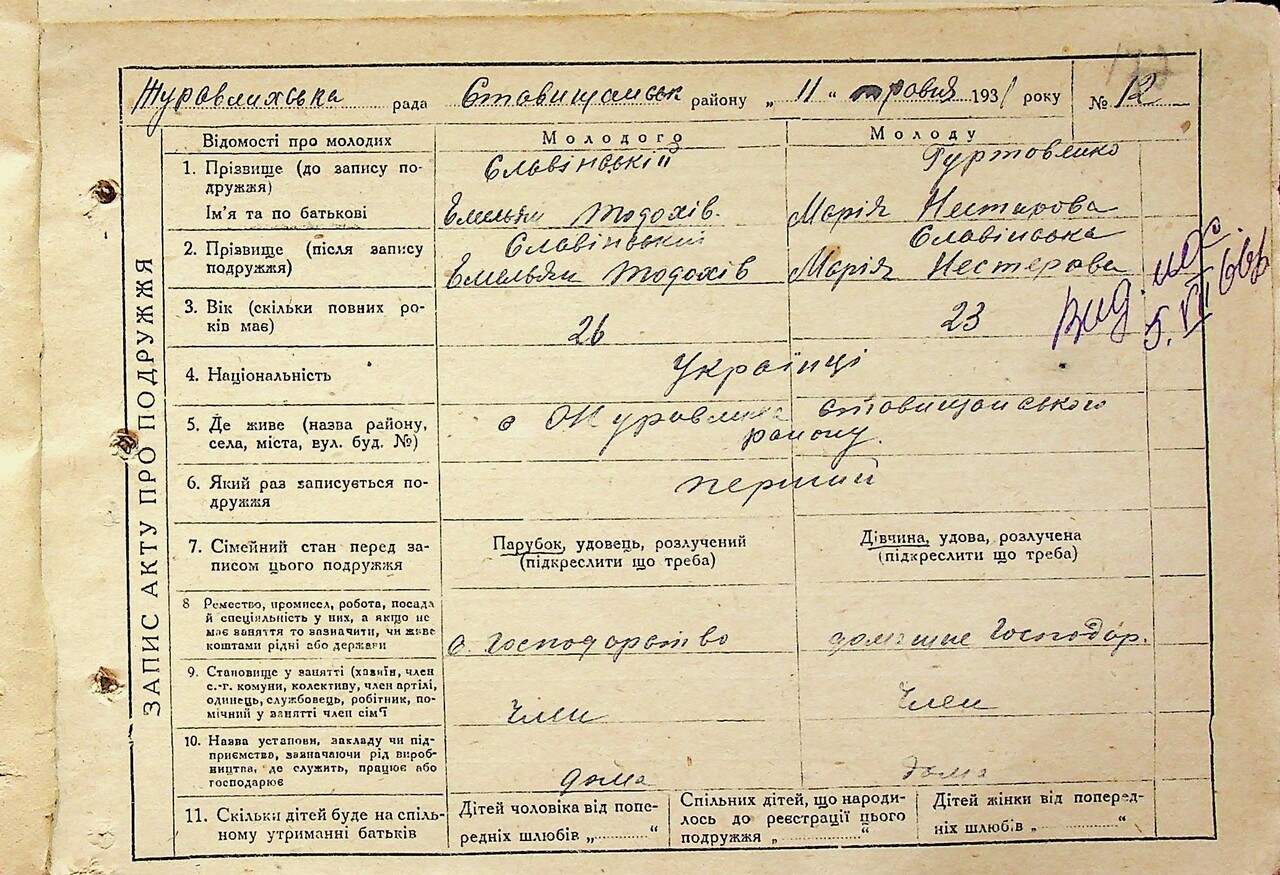 Журавлихська рада Ставищанськ району „ 11 “ травня 1931 року № 12
ЗАПИС АКТУ ПРО ПОДРУЖЖЯ
Відомості про молодих
Молодого
Молоду
1. Прізвище (до запису по-
дружжя)
Славінській
Гуртовенко
Ім’я та по батькові
Емельян Тодохів.
Марія Нестирова
2. Прізвище (після запису
подружжя)
Славінський
Емельян Тодохів
Славінська
Марія Нестерова
3. Вік (скільки повних ро-
ків має)
26
23
Вид.
5. VII 66р
4. Національність
Українці
5. Де живе (назва району,
села, міста, вул. буд. №)
с Журавлиха Ставищанського
району.
6. Який раз записується по-
дружжя
перший
7. Сімейний стан перед за-
писом цього подружжя
Парубок, удовець, розлучений
(підкреслити що треба)
Дівчина, удова, розлучена
(підкреслити що треба)
8 Ремество, промисел, робота, посада
й спеціяльність у них, а якщо не
має заняття то зазначити, чи живе
коштами рідні або держави
с. господарство
домашне господар.
9. Становище у занятті (хазяїн, член
с.-г. комуни, колективу, член артілі,
одинець, службовець, робітник, по-
мічний у занятті член сім’ї
член
член
10. Назва установи, закладу чи під-
приємства, зазначаючи рід вироб-
ництва, де служить, працює або
господарює
дома
дома
11. Скільки дітей буде на спіль-
ному утриманні батьків
Дітей чоловіка від попе-
редніх шлюбів „ “
Спільних дітей, що народи-
лось до реєстрації цього
подружжя „ “
Дітей жінки від поперед-
ніх шлюбів „ “